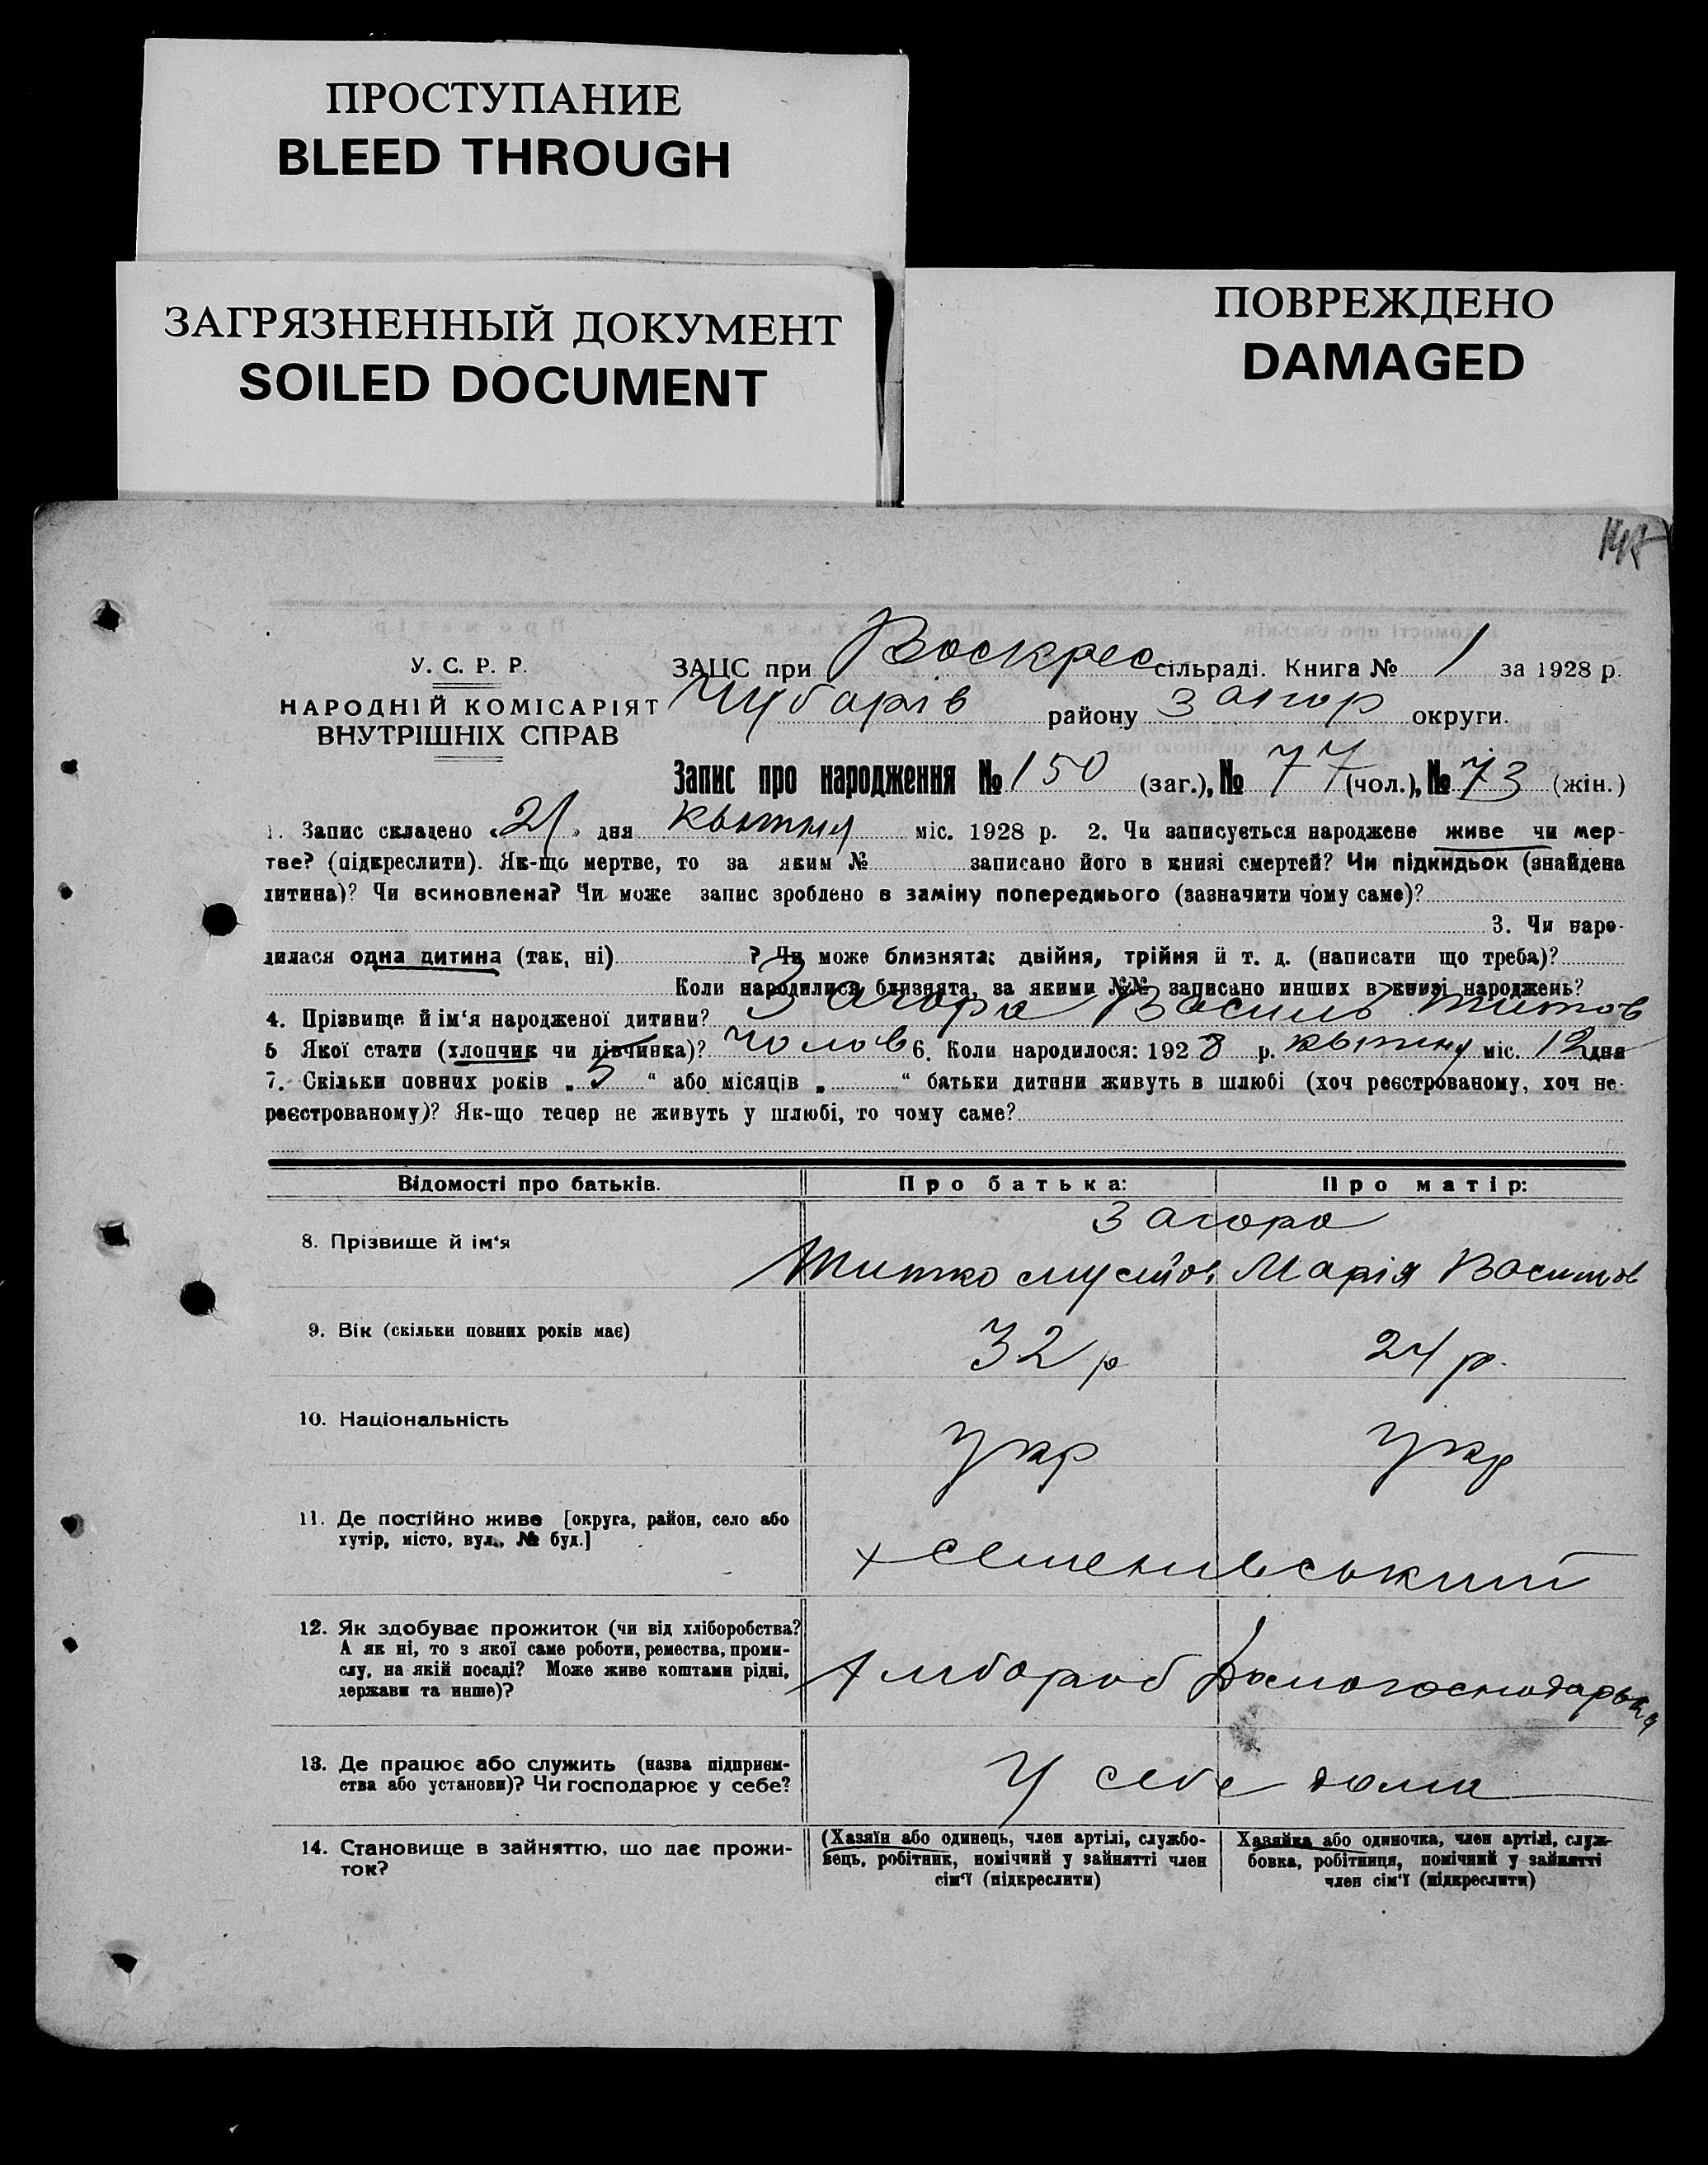 ПРОСТУПАНИЕ
BLEED THROUGH
ЗАГРЯЗНЕННЫЙ ДОКУМЕНТ
SOILED DOCUMENT
ПОВРЕЖДЕНО
DAMAGED
У. С. Р. Р.
НАРОДНІЙ КОМІСАРІЯТ
ВНУТРІШНІХ СПРАВ
ЗАЦС при Воскрес сільраді. Книга № 1 за 1928 р.
Чубарів району Запор округи.
Запис про народження № 150 (заг.), № 77 (чол.), № 73 (жін.)
1. Запис складено «21» дня квітня міс. 1928 р. 2. Чи записується народжене живе чи мер-
тве? (підкреслити). Як-що мертве, то за яким № записано його в книзі смертей? Чи підкидьок (знайдена
дитина)? Чи всиновлена? Чи може запис зроблено в заміну попереднього (зазначити чому саме)?
3. Чи наро-
дилася одна дитина (так, ні) ? Чи може близнята: двійня, трійня й т. д. (написати що треба)?
Коли народилися близнята, за якими №№ записано инших в книзі народжень?
4. Прізвище й ім'я народженої дитини? Загора Василь Титов
5 Якої стати (хлопчик чи дівчинка)? чолов 6. Коли народилося: 1928 р. квітня міс. 12 дня
7. Скільки повних років „ 5 “ або місяців „ “ батьки дитини живуть в шлюбі (хоч реєстрованому, хоч не-
реєстрованому)? Як-що тепер не живуть у шлюбі, то чому саме?
Відомості про батьків. Про батька: Про матір:
Загора
8. Прізвище й ім'я
Титко Марія Василів
9. Вік (скільки повних років має) 32 р 24 р.
10. Національність Укр Укр
11. Де постійно живе [округа, район, село або
хутір, місто, вул., № буд.]
х Семенівський
12. Як здобуває прожиток (чи від хліборобства?
А як ні, то з якої саме роботи, ремества, проми-
слу, на якій посаді? Може живе коштами рідні,
держави та инше)?
Хлібороб Домогосподарька
13. Де працює або служить (назва підприєм-
ства або установи)? Чи господарює у себе?
У себе дома
14. Становище в зайняттю, що дає прожи-
ток?
(Хазяїн або одинець, член артілі, службо-
вець, робітник, помічний у зайнятті член
сім'ї (підкреслити)
Хазяйка або одиночка, член артілі, служ-
бовка, робітниця, помічний у зайнятті
член сім'ї (підкреслити)